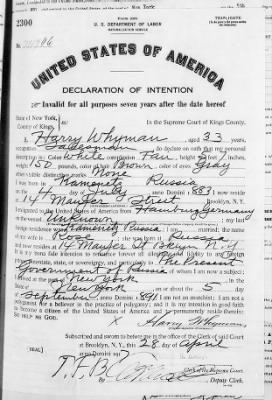 U. S. DEPARTMENT OF LABOR
NATURALIZATION SERVICE
TRIPLICATE
2300
UNITED STATES OF AMERICA
DECLARATION OF INTENTION
Invalid for all purposes seven years after the date hereof
State of New York,
County of Kings,
In the Supreme Court of Kings County.
I, Harry Whyman, aged 33 years,
occupation Salesman, do declare on oath that my personal
description is: Color White, complexion Fair, height 5 feet inches,
weight 150 pounds, color of hair Brown, color of eyes Gray
other visible distinctive marks None
I was born in Kamenetz Russia
on the 14 day of July, anno Domini 1883; I now reside
at 14 Manjer Street, Brooklyn, N. Y.
I emigrated to the United States of America from Hamburg Germany
on the vessel Unknown; my last
foreign residence was Kamenetz Russia; I am married; the name
of my wife is Rose; she was born in Russia
and now resides at 14 Manjer St Bklyn N.Y.
It is my bona fide intention to renounce forever all allegiance and fidelity to any foreign
prince, potentate, state, or sovereignty, and particularly to The Present
Government of Russia, of whom I am now a subject;
I arrived at the port of New York, in the
State of New York, on or about the 5 day
of September, anno Domini 1891; I am not an anarchist; I am not a
polygamist nor a believer in the practice of polygamy; and it is my intention in good faith
to become a citizen of the United States of America and to permanently reside therein:
SO HELP ME GOD.
X Harry Whyman
Subscribed and sworn to before me in the office of the Clerk of said Court
at Brooklyn, N. Y., this 28 day of April
anno Domini 19
[SEAL]
Clerk of the Supreme Court.
By Deputy Clerk.